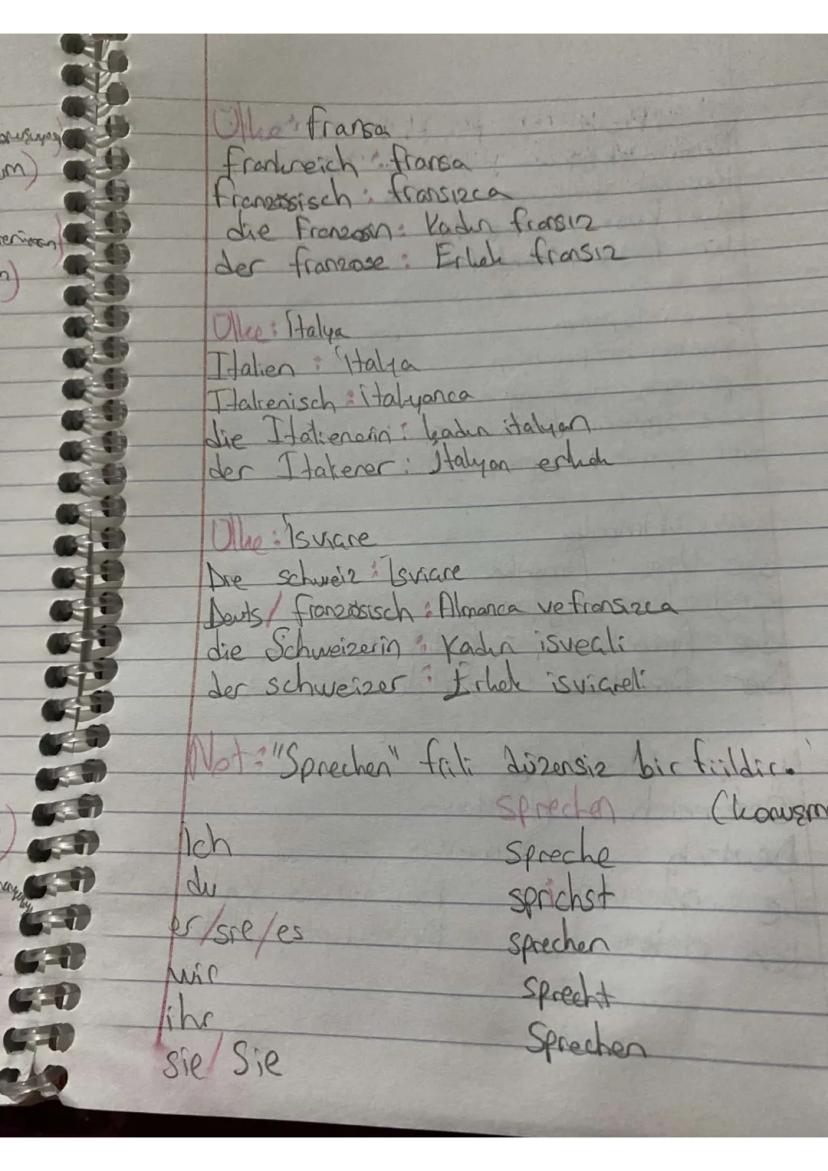 Ülke: fransa
frankreich : fransa
französisch : fransızca
die Franzosin : Kadın fransız
der franzose : Erkek fransız
Ülke : İtalya
Italien : İtalya
Italienisch : italyanca
die Italienerin : kadın italyan
der Italiener : İtalyan erkek
Ülke : İsviçre
Die schweiz : İsviçre
Deuts/ französisch : Almanca ve fransızca
die Schweizerin : Kadın isveçli
der schweizer : Erkek isviçreli
Not : "Sprechen" fiili düzensiz bir fiildir.
sprechen (konuşm
ich spreche
du sprichst
er/sie/es sprechen
wir sprecht
ihr Sprechen
sie/ Sie